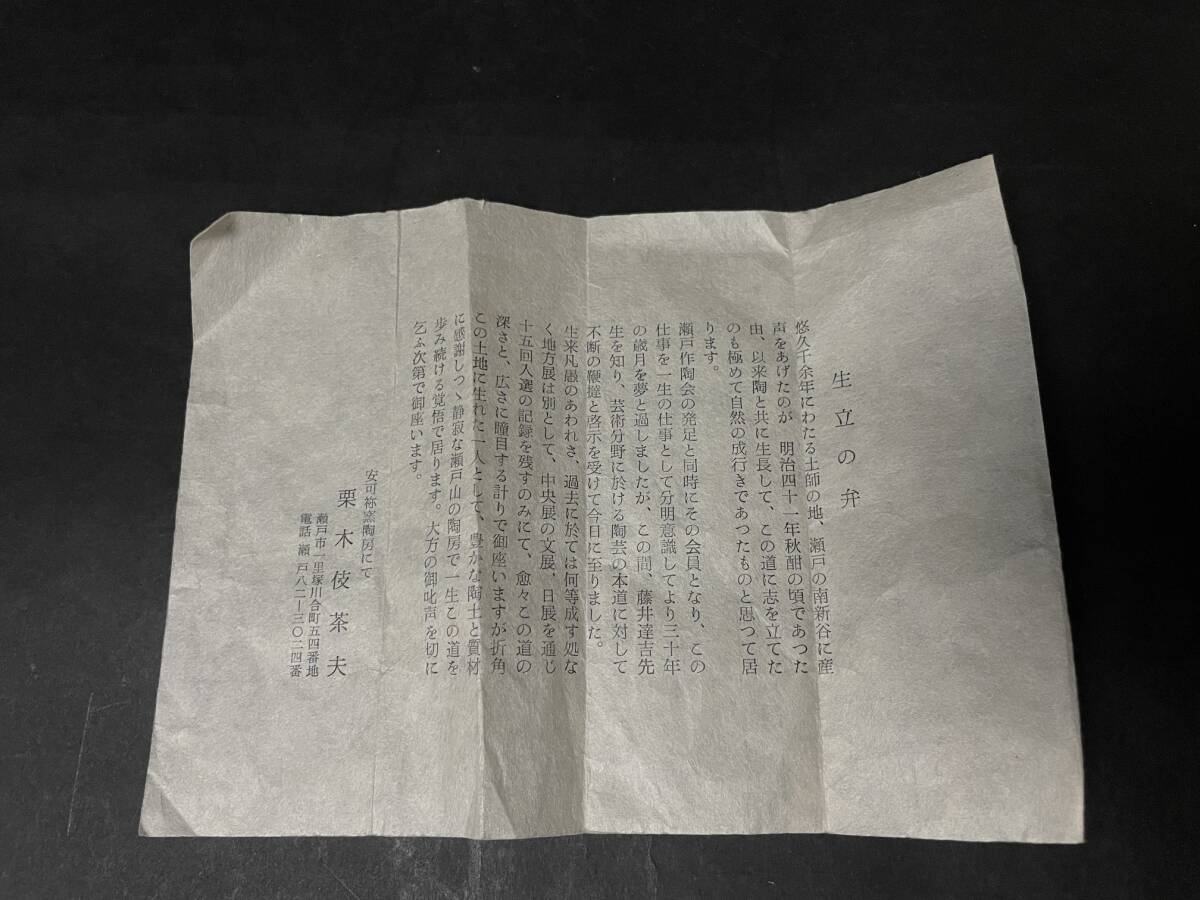 生立の弁
悠久千余年にわたる土師の地、瀬戸の南新谷に産
声をあげたのが 明治四十一年秋酣の頃であつた
由、以来陶と共に生長して、この道に志を立てた
のも極めて自然の成行きであつたものと思つて居
ります。
瀬戸作陶会の発足と同時にその会員となり、この
仕事を一生の仕事として分明意識してより三十年
の歳月を夢と過しましたが、この間、藤井達吉先
生を知り、芸術分野に於ける陶芸の本道に対して
不断の鞭撻と啓示を受けて今日に至りました。
生来凡愚のあわれさ、過去に於ては何等成す処な
く地方展は別として、中央展の文展、日展を通じ
十五回入選の記録を残すのみにて、愈々この道の
深さと、広さに瞳目する計りで御座いますが折角
この土地に生れた一人として、豊かな陶土と質材
に感謝しつゝ静寂な瀬戸山の陶房で一生この道を
歩み続ける覚悟で居ります。大方の御叱声を切に
乞ふ次第で御座います。
安可祢窯陶房にて
栗木伎茶夫
瀬戸市一里塚川合町五四番地
電話瀬戸八二―三〇二四番